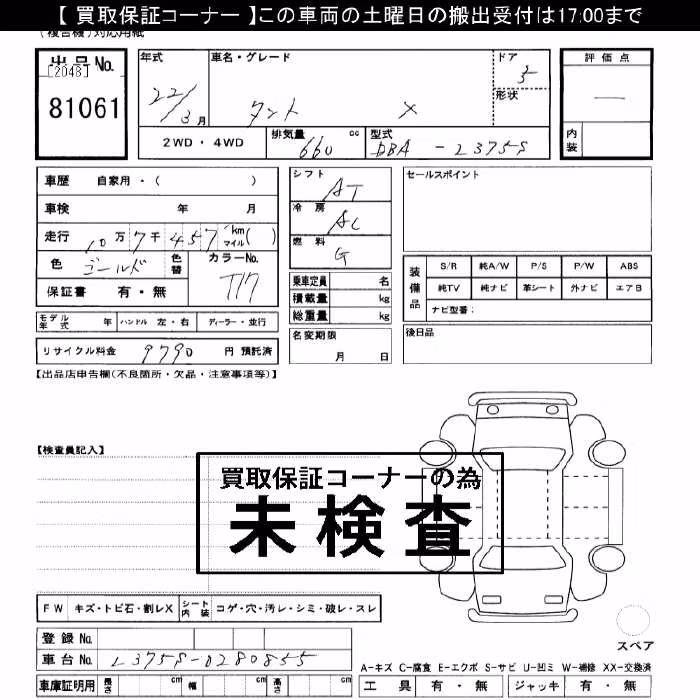 【 買取保証コーナー 】この車両の土曜日の搬出受付は17:00まで
(複合機)対応用紙
出品No.
[2048]
81061
年式
22/3月
車名・グレード
タント X
ドア
5
形状
評価点
—
内装
2WD・4WD
排気量 cc
660
型式
DBA - L375S
車歴 自家用・( )
車検 年 月
走行 10万7千457 km マイル ( )
色 ゴールド 色替 カラーNo. T17
保証書 有・無
シフト AT
冷房 AC
燃料 G
乗車定員 名
積載量 kg
総重量 kg
セールスポイント
装備品
S/R 純A/W P/S P/W ABS
純TV 純ナビ 革シート 外ナビ エアB
ナビ型番:
モデル年式 年 ハンドル 左・右 ディーラー・並行
リサイクル料金 9790 円 預託済
名変期限 月 日
後日品
【出品店申告欄(不良箇所・欠品・注意事項等)】
【検査員記入】
買取保証コーナーの為
未検査
FW キズ・トビ石・割レX シート内装 コゲ・穴・汚レ・シミ・破レ・スレ
登録No.
車台No. L375S-0280855
車庫証明用 長さ cm 幅 cm 高さ cm
スペア
A-キズ C-腐食 E-エクボ S-サビ U-凹ミ W-補修 XX-交換済
工具 有・無 ジャッキ 有・無